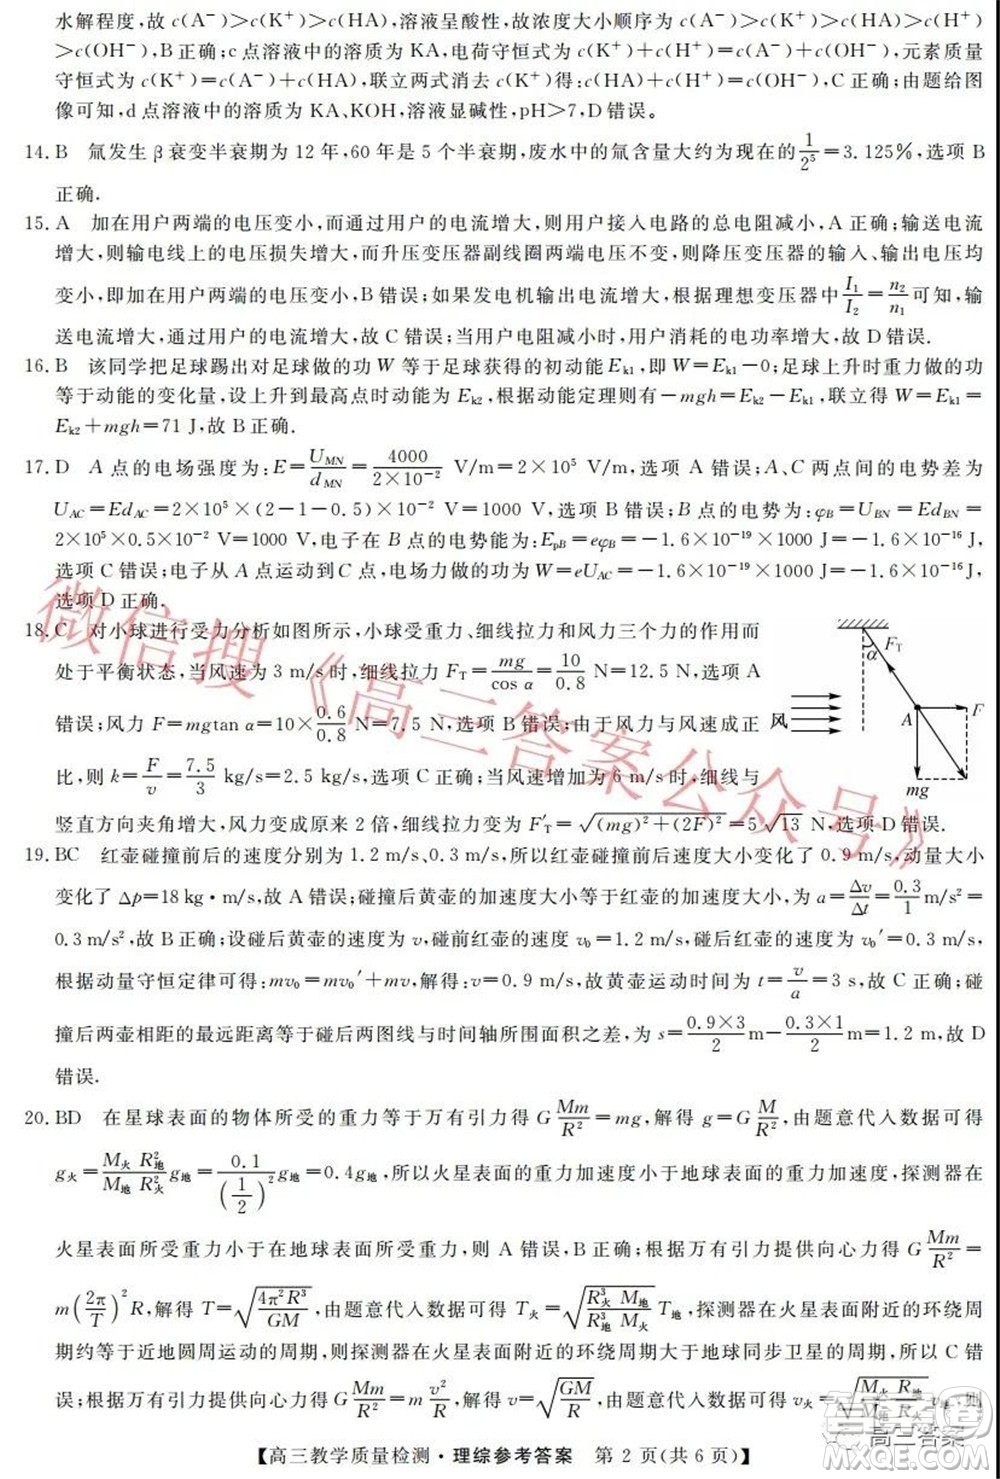 水解程度,故 c(A⁻)>c(K⁺)>c(HA),溶液呈酸性,故浓度大小顺序为 c(A⁻)>c(K⁺)>c(HA)>c(H⁺)
>c(OH⁻),B 正确;c 点溶液中的溶质为 KA,电荷守恒式为 c(K⁺)+c(H⁺)=c(A⁻)+c(OH⁻),元素质量
守恒式为 c(K⁺)=c(A⁻)+c(HA),联立两式消去 c(K⁺)得:c(HA)+c(H⁺)=c(OH⁻),C 正确;由题给图
像可知,d 点溶液中的溶质为 KA、KOH,溶液显碱性,pH>7,D 错误。
14. B 氚发生 β 衰变半衰期为 12 年,60 年是 5 个半衰期,废水中的氚含量大约为现在的 1/2⁵=3.125%,选项 B
正确.
15. A 加在用户两端的电压变小,而通过用户的电流增大,则用户接入电路的总电阻减小,A 正确;输送电流
增大,则输电线上的电压损失增大,而升压变压器副线圈两端电压不变,则降压变压器的输入、输出电压均
变小,即加在用户两端的电压变小,B 错误;如果发电机输出电流增大,根据理想变压器中 I₁/I₂=n₂/n₁ 可知,输
送电流增大,通过用户的电流增大,故 C 错误;当用户电阻减小时,用户消耗的电功率增大,故 D 错误.
16. B 该同学把足球踢出对足球做的功 W 等于足球获得的初动能 Eₖ₁,即 W=Eₖ₁−0;足球上升时重力做的功
等于动能的变化量,设上升到最高点时动能为 Eₖ₂,根据动能定理则有−mgh=Eₖ₂−Eₖ₁,联立得 W=Eₖ₁=
Eₖ₂+mgh=71 J,故 B 正确.
17. D A 点的电场强度为:E=U_MN/d_MN=4000/(2×10⁻²) V/m=2×10⁵ V/m,选项 A 错误;A、C 两点间的电势差为
U_AC=Ed_AC=2×10⁵×(2−1−0.5)×10⁻² V=1000 V,选项 B 错误;B 点的电势为:φ_B=U_BN=Ed_BN=
2×10⁵×0.5×10⁻² V=1000 V,电子在 B 点的电势能为:E_pB=eφ_B=−1.6×10⁻¹⁹×1000 J=−1.6×10⁻¹⁶ J,
选项 C 错误;电子从 A 点运动到 C 点,电场力做的功为 W=eU_AC=−1.6×10⁻¹⁹×1000 J=−1.6×10⁻¹⁶ J,
选项 D 正确.
18. C 对小球进行受力分析如图所示,小球受重力、细线拉力和风力三个力的作用而
处于平衡状态,当风速为 3 m/s 时,细线拉力 F_T=mg/cos α=10/0.8 N=12.5 N,选项 A
错误;风力 F=mgtan α=10×0.6/0.8 N=7.5 N,选项 B 错误;由于风力与风速成正
比,则 k=F/v=7.5/3 kg/s=2.5 kg/s,选项 C 正确;当风速增加为 6 m/s 时,细线与
竖直方向夹角增大,风力变成原来 2 倍,细线拉力变为 F′_T=√((mg)²+(2F)²)=5√13 N,选项 D 错误.
F_T
α
风
A
F
mg
19. BC 红壶碰撞前后的速度分别为 1.2 m/s、0.3 m/s,所以红壶碰撞前后的速度大小变化了 0.9 m/s,动量大小
变化了 Δp=18 kg·m/s,故 A 错误;碰撞后黄壶的加速度大小等于红壶的加速度大小,为 a=Δv/Δt=0.3/1 m/s²=
0.3 m/s²,故 B 正确;设碰后黄壶的速度为 v,碰前红壶的速度 v₀=1.2 m/s,碰后红壶的速度为 v₀′=0.3 m/s,
根据动量守恒定律可得:mv₀=mv₀′+mv,解得:v=0.9 m/s,故黄壶运动时间为 t=v/a=3 s,故 C 正确;碰
撞后两壶相距的最远距离等于碰后两图线与时间轴所围面积之差,为 s=(0.9×3)/2 m−(0.3×1)/2 m=1.2 m,故 D
错误.
20. BD 在星球表面的物体所受的重力等于万有引力得 G Mm/R²=mg,解得 g=G M/R²,由题意代入数据可得
g火=(M火/M地)(R²地/R²火)g地=0.1/(1/2)² g地=0.4g地,所以火星表面的重力加速度小于地球表面的重力加速度,探测器在
火星表面所受重力小于在地球表面所受重力,则 A 错误,B 正确;根据万有引力提供向心力得 G Mm/R²=
m(2π/T)²R,解得 T=√(4π²R³/GM),由题意代入数据可得 T火=√((R³火/R³地)(M地/M火)) T地,探测器在火星表面附近的环绕周
期约等于近地圆周运动的周期,则探测器在火星表面附近的环绕周期大于地球同步卫星的周期,所以 C 错
误;根据万有引力提供向心力得 G Mm/R²=m v²/R,解得 v=√(GM/R),由题意代入数据可得 v火=√((M火/M地)(R地/R火)) v地,则
【高三教学质量检测·理综参考答案 第 2 页(共 6 页)】
微信搜《高三答案公众号》
高三答案